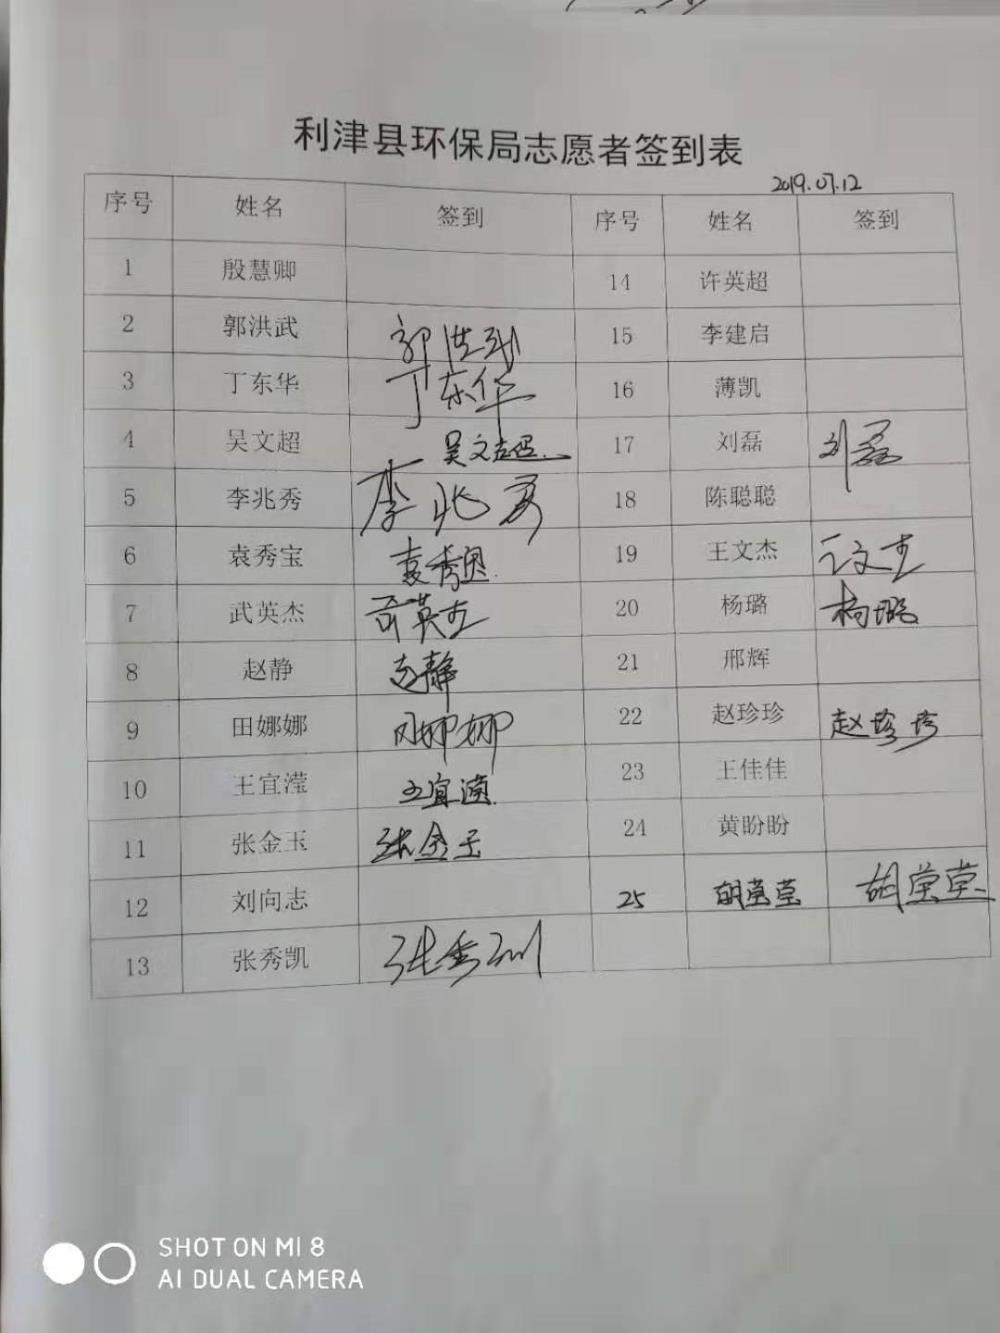 利津县环保局志愿者签到表
2019.07.12
序号 姓名 签到 序号 姓名 签到
1 殷慧卿 14 许英超
2 郭洪武 郭洪武 15 李建启
3 丁东华 丁东华 16 薄凯
4 吴文超 吴文超 17 刘磊 刘磊
5 李兆秀 李兆秀 18 陈聪聪
6 袁秀宝 袁秀宝 19 王文杰 王文杰
7 武英杰 武英杰 20 杨璐 杨璐
8 赵静 赵静 21 邢辉
9 田娜娜 田娜娜 22 赵珍珍 赵珍珍
10 王宜滢 王宜滢 23 王佳佳
11 张金玉 张金玉 24 黄盼盼
12 刘向志 25 胡莹莹 胡莹莹
13 张秀凯 张秀凯
SHOT ON MI 8
AI DUAL CAMERA